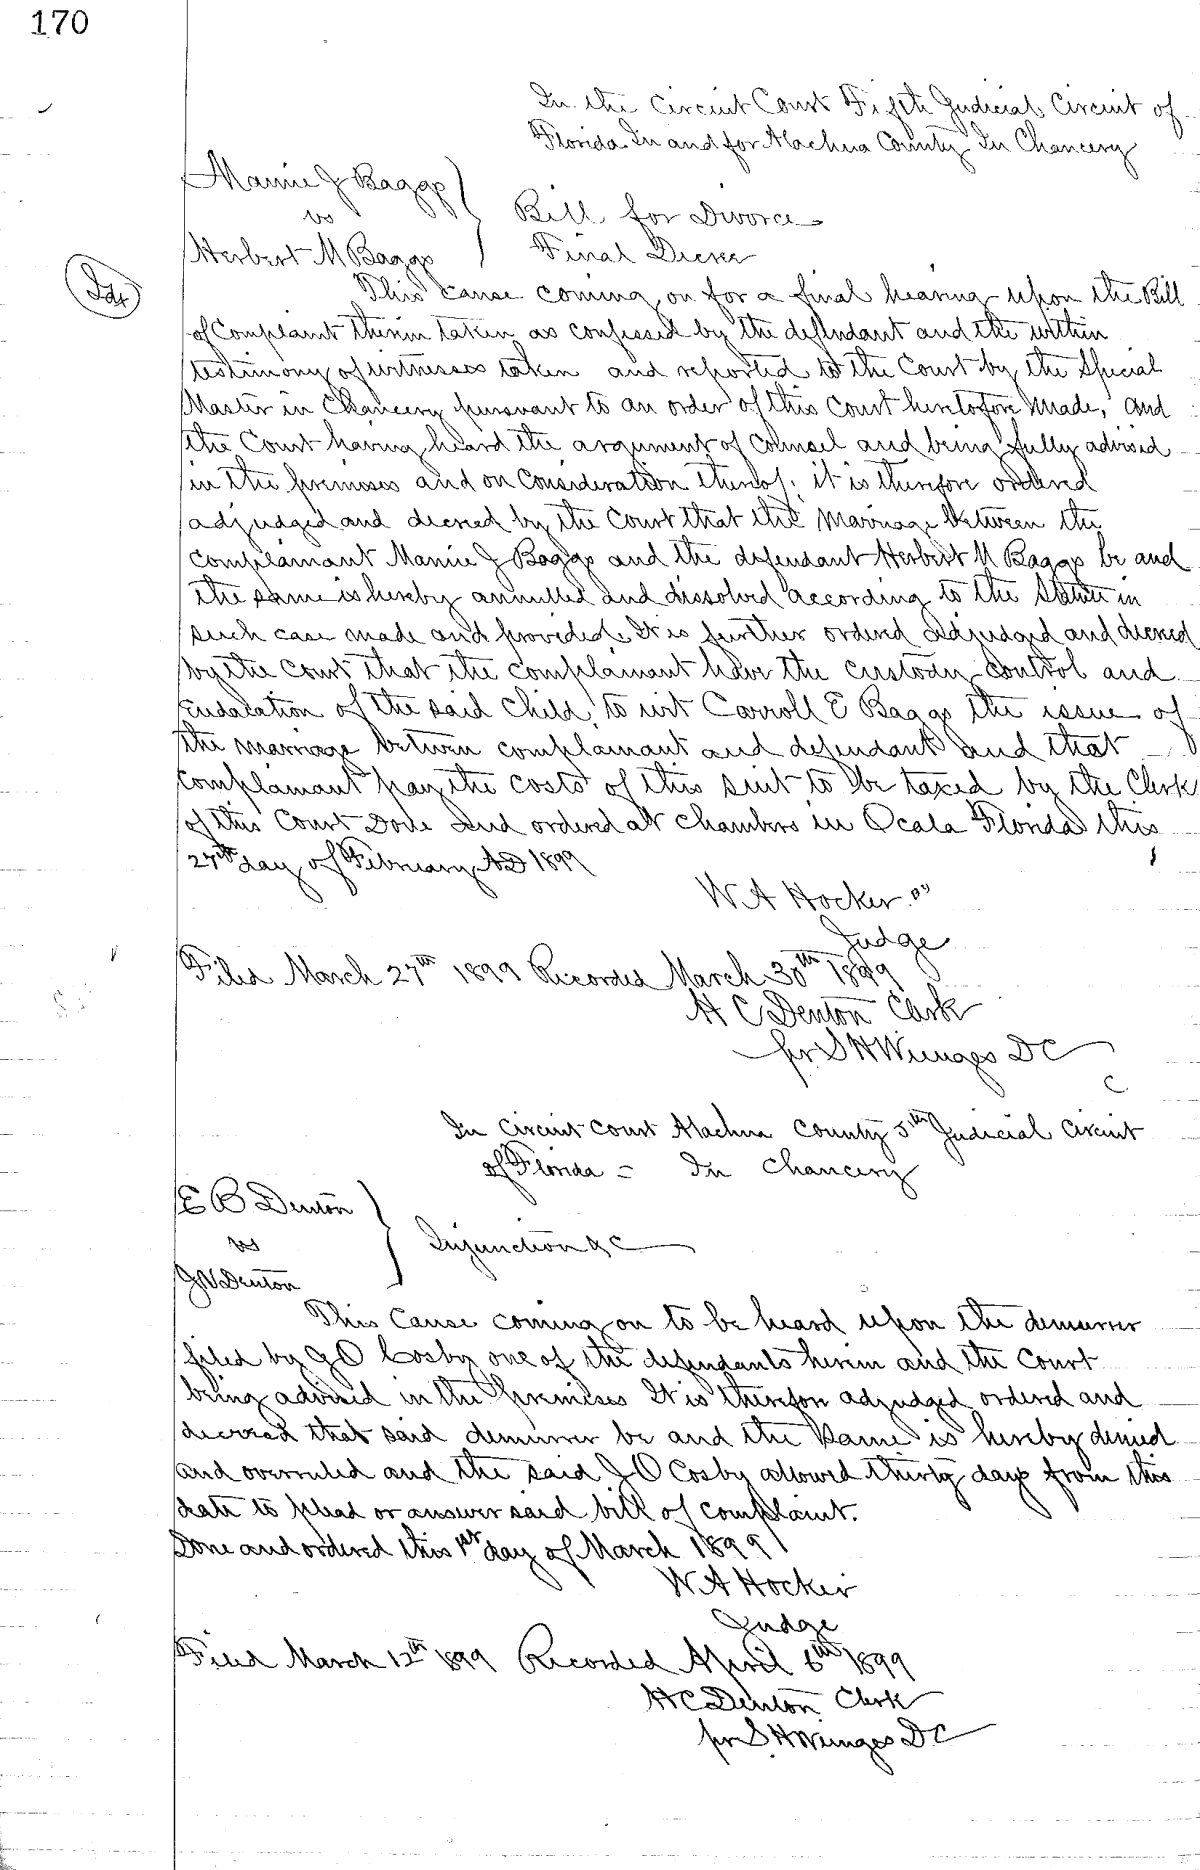 170
In the Circuit Court Fifth Judicial Circuit of
Florida In and for Alachua County In Chancery
Mamie J Baggs
vs
Bill for Divorce
Herbert M Baggs
Final Decree
This cause coming on for a final hearing upon the Bill
of Complaint therin taken as confessed by the defendant and the within
testimony of witnesses taken and reported to the Court by the Special
Master in Chancery pursuant to an order of this Court heretofore made, and
the Court having heard the argument of Counsel and being fully advised
in the premises and on Consideration thereof, it is therefore ordered
adjudged and decreed by the Court that the marriage between the
complainant Mamie J Baggs and the defendant Herbert M Baggs be and
the same is hereby annulled and dissolved according to the Statute in
such case made and provided. It is further ordered adjudged and decreed
by the Court that the complainant have the custody control and
of the said child, to wit Carroll E Baggs the issue of
the marriage between complainant and defendant and that
complainant pay the costs of this suit to be taxed by the Clerk
of this Court Done and ordered at chambers in Ocala Florida this
27th day of February AD 1899
W A Hocker
Judge
Filed March 27th 1899 Recorded March 30th 1899
H C Denton Clerk
pr S H Wienges DC
In Circuit Court Alachua County 5th Judicial Circuit
of Florida = In Chancery
E B Denton
vs
Injunction &C
J V Denton
This Cause coming on to be heard upon the demurrer
filed by J O Cosby one of the defendants herein and the Court
being advised in the premises It is therefore adjudged ordered and
decreed that said demurrer be and the same is hereby denied
and overruled and the said J O Cosby allowed thirty days from this
date to plead or answer said bill of complaint.
Done and ordered this 1st day of March 1899
W A Hocker
Judge
Filed March 12th 1899 Recorded April 6th 1899
H C Denton Clerk
pr S H Wienges DC